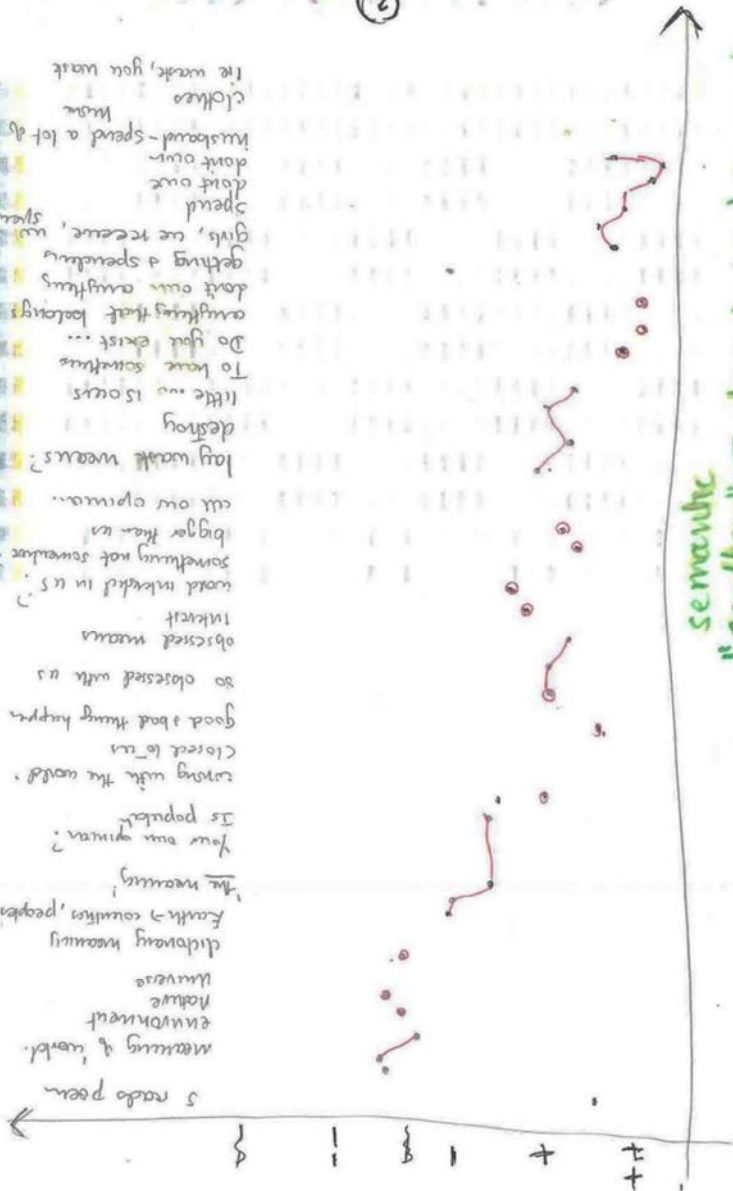 S reads poem
meaning of 'world'.
environment
native
universe
dictionary meaning
Earth → countries, peoples
'the meaning'
Your own opinion?
Is popular
wrong with the world'
closed to us
good & bad thing happen
so obsessed with us
obsessed means
interest
world interested in us?
something not somewhere
bigger then us
our own opinion...
lay waste means?
destroy
little ... is ours
To have something
Do you exist ...
anything that belongs
don't own anything
getting & spending
girls, we receive, we
spend
dont owe
don't own
husband - spend a lot of
clothes
he wask, you wask
2
semantic
++
+
-
--